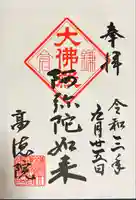 奉拝
令和二年
九月廿五日
大佛
阿弥陀如来
高徳院